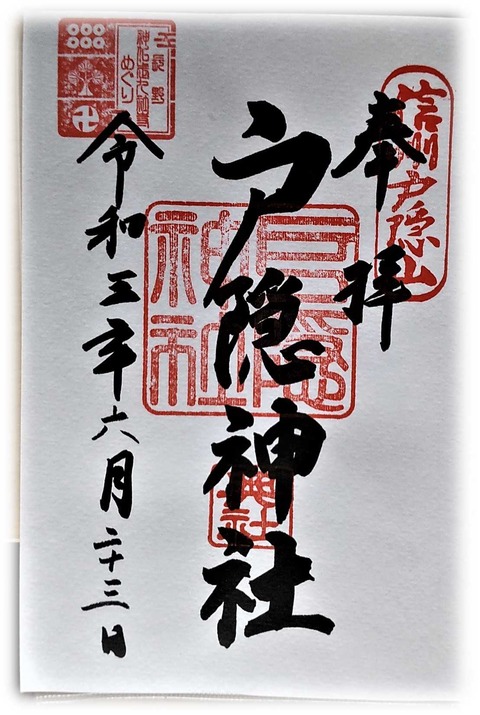 信州戸隠山
奉拝
戸隠神社
戸隠
神社
令和三年六月二十三日
めぐり